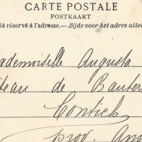 CARTE POSTALE
POSTKAART
té réservé à l'adresse.— Zijde voor het adres alleen
ademoiselle Augusta
teau de Bauter
Contich
prov. An